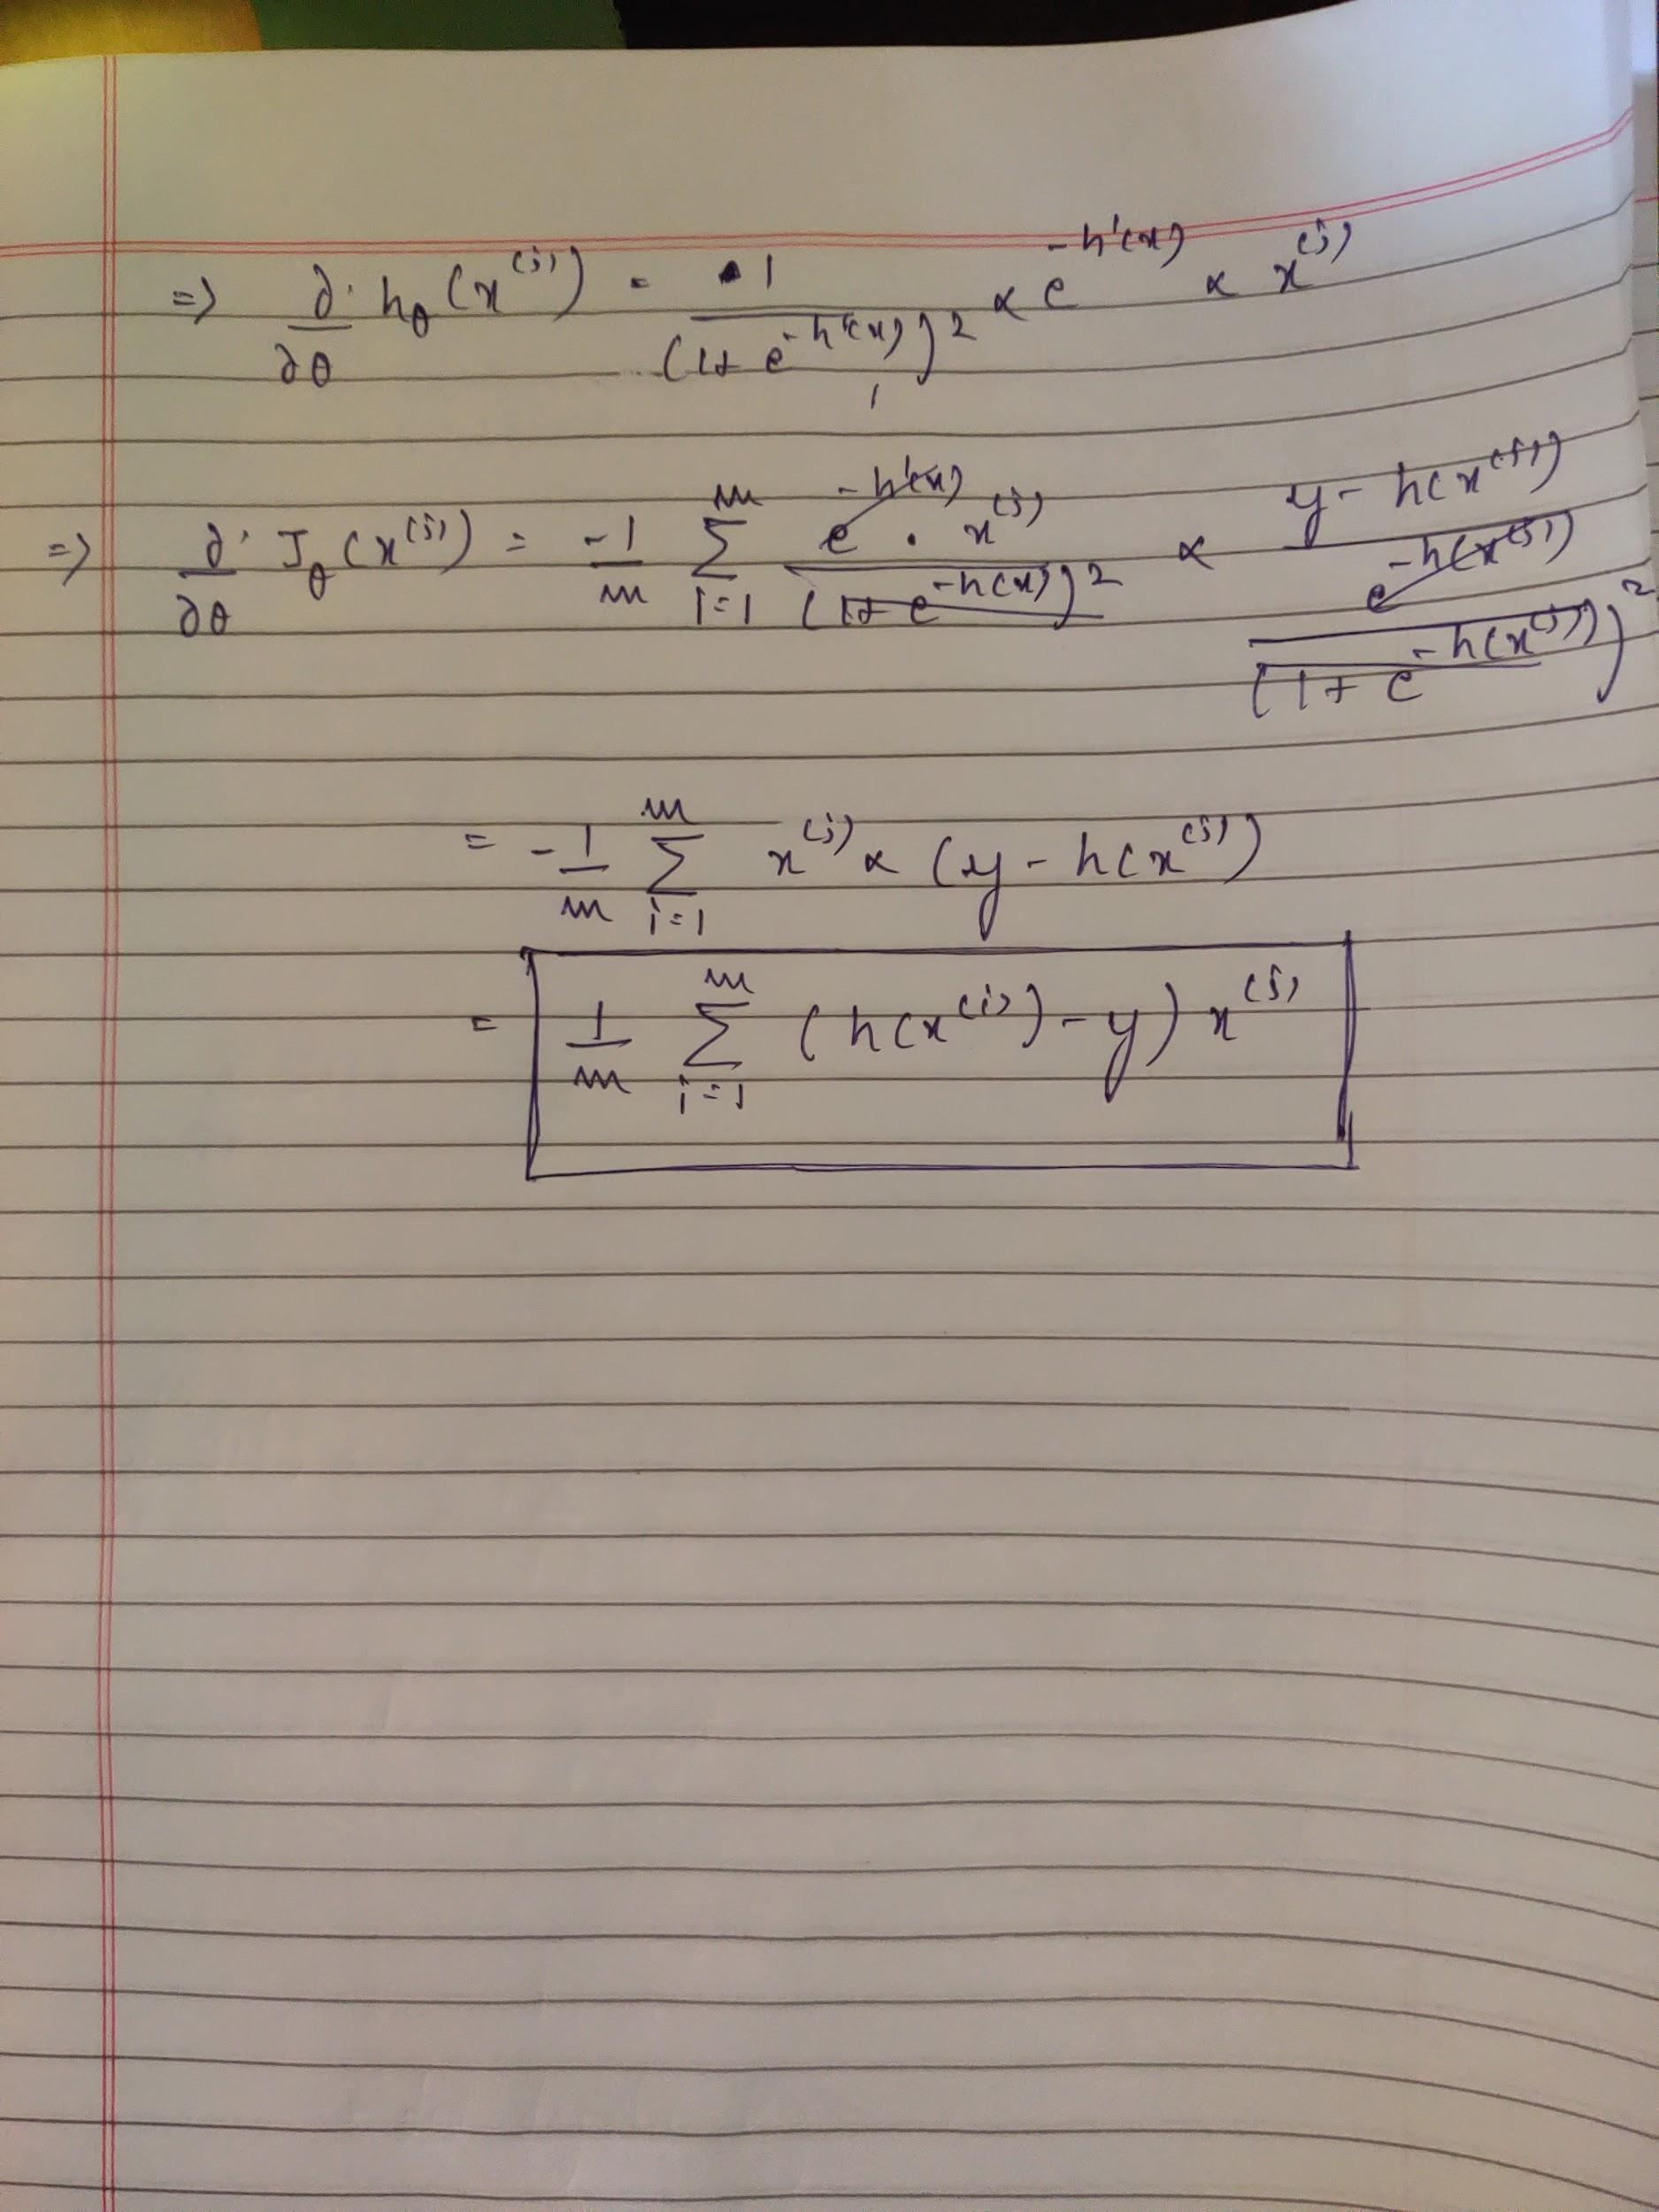 => ∂/∂θ h_θ(x^(j)) = 1/(1+e^(-h'(x)))^2 × e^(-h'(x)) × x^(j)
=> ∂/∂θ J_θ(x^(j)) = -1/m Σ_{i=1}^{m} (e^(-h'(x)) · x^(j))/(1+e^(-h(x)))^2 × (y - h(x^(j)))/(e^(-h(x^(j)))/(1+e^(-h(x^(j))))^2)
= -1/m Σ_{i=1}^{m} x^(j) × (y - h(x^(j))
= 1/m Σ_{i=1}^{m} (h(x^(i)) - y) x^(j)